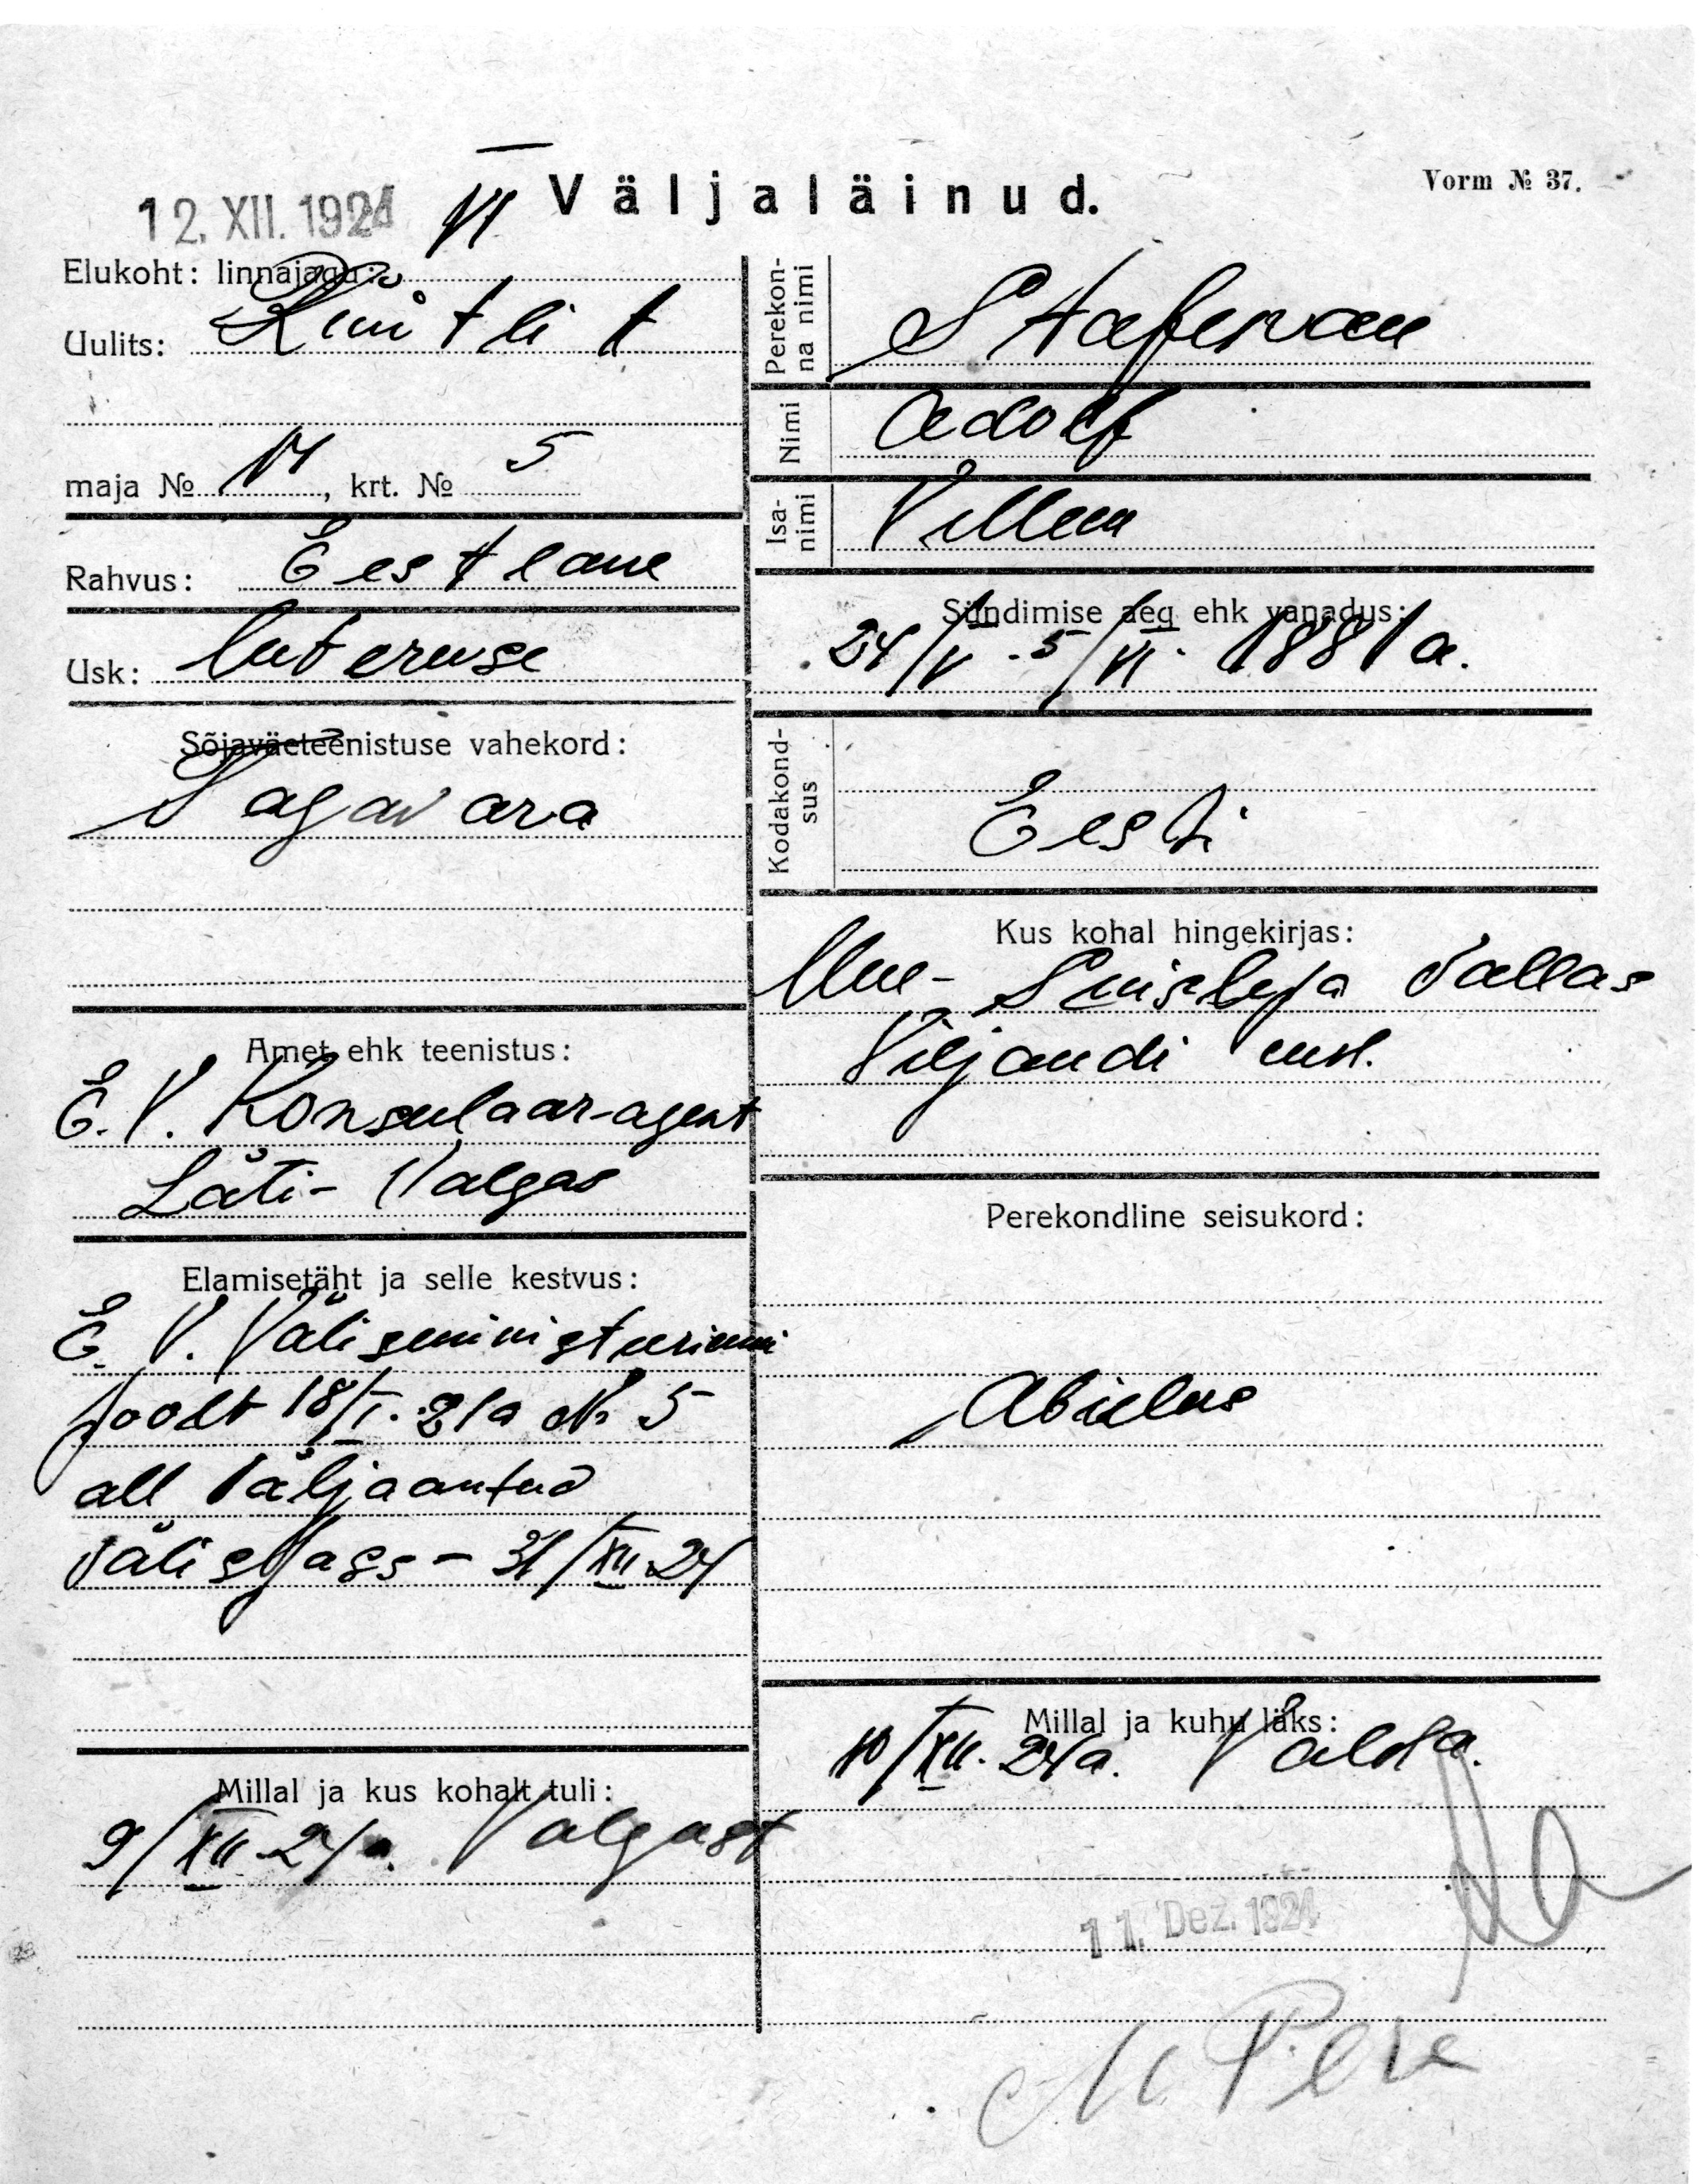 12. XII. 1924
VI
Väljaläinud.
Vorm № 37.
Elukoht: linnajagu:
Uulits: Rüütli t
maja № 14, krt. № 5
Rahvus: Eestlane
Usk: luteruse
Sõjaväeteenistuse vahekord:
Tagavara
Amet ehk teenistus:
E.V. Konsulaar-agent
Läti- Valgas
Elamisetäht ja selle kestvus:
E. V. Välisministeeriumi
poolt 18/I. 21a № 5
all väljaantud
välispass - 31/XII 24
Millal ja kus kohalt tuli:
9/XII 24a. Valgast
Perekonna nimi
Nimi Adolf
Isanimi Villem
Sündimise aeg ehk vanadus:
24/V. 5/VI. 1881 a.
Kodakondsus
Eesti
Kus kohal hingekirjas:
Uue- Suislepa vallas
Viljandi msk.
Perekondline seisukord:
Abielus
Millal ja kuhu läks:
10/XII. 24a. Valka.
11. Dez. 1924